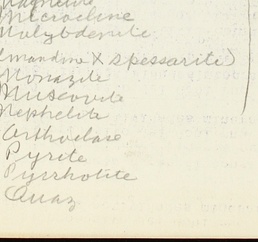 Magnetite
Microcline
Molybdenite
(Almandine X Spessarite)
Monazite
Muscovite
Nephelite
Orthoclase
Pyrite
Pyrrhotite
Quaz